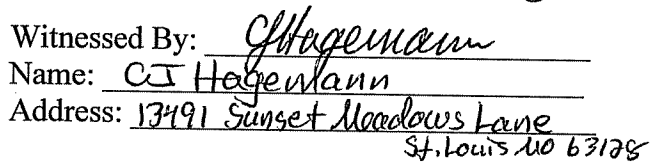 Witnessed By: CJHagemann
Name: CJ Hagemann
Address: 13491 Sunset Meadows Lane
St. Louis MO 63128